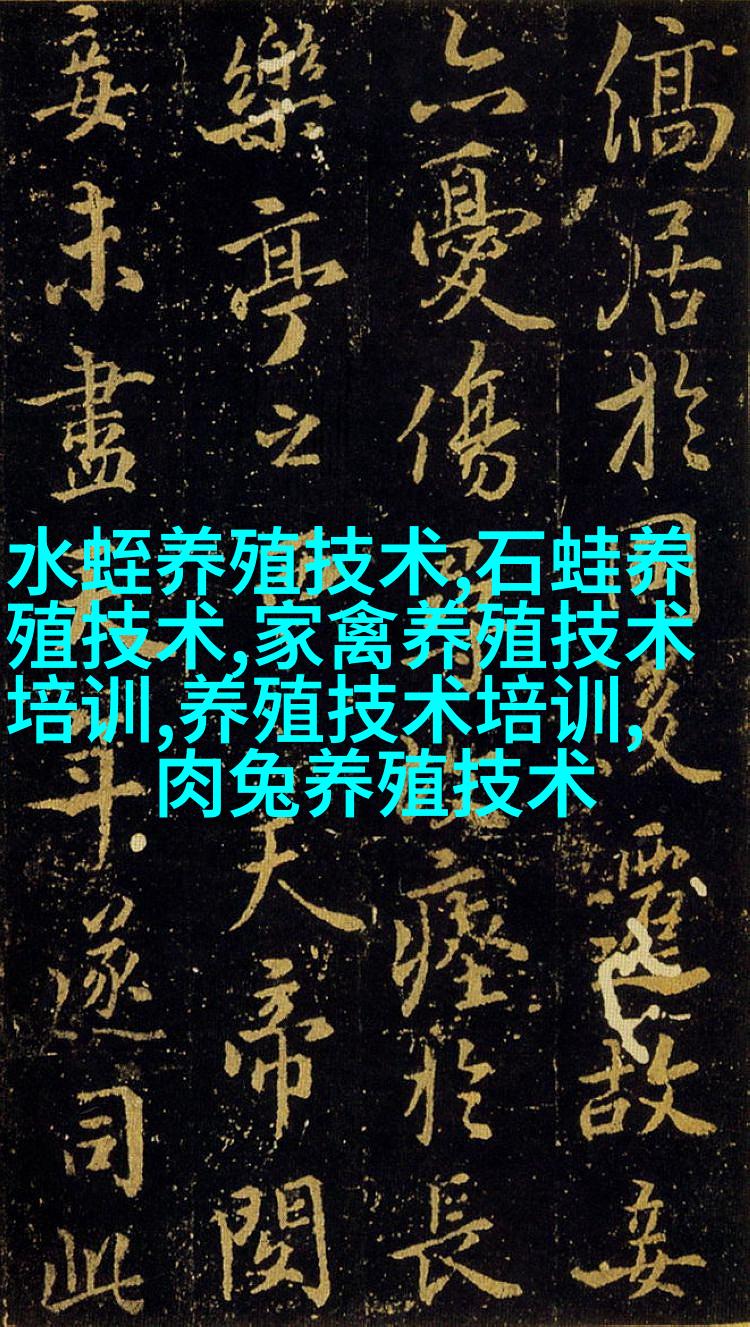 居於同夏遷故妾
亦憂傷瘞於長
樂亭之天帝閔
妾未盡天年遂司此
水蛭养殖技术,石蛙养
殖技术,家禽养殖技术
培训,养殖技术培训,
肉兔养殖技术